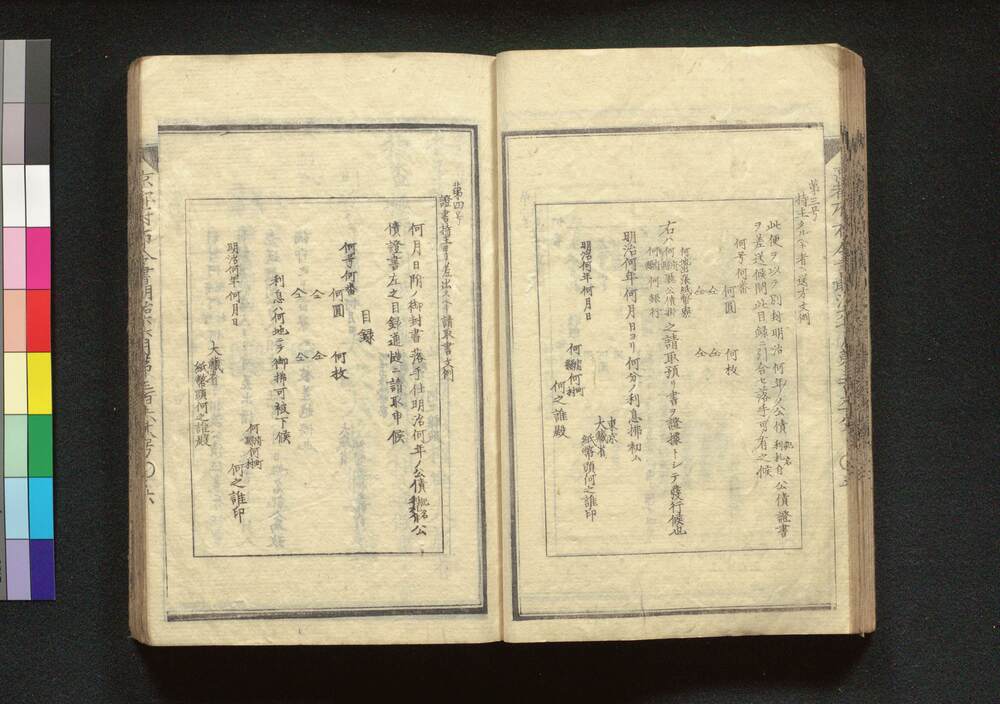 第三号
持主タルヘキ者ニ送方文例
此便ヲ以テ別封明治何年ノ公債記名利札自公債證書
ヲ差送候間此目録ニ引合セ落手可有之候
何号何番
何圓 何枚
仝 仝
仝 仝
右ハ
公債掛
之請取預リ書ヲ證據トシテ發行候也
何縣何銀行
明治何年何月日ヨリ何分ノ利息拂初ム
東京
大藏省
紙幣頭何之誰印
明治何年何月日
何町
何村
何之誰殿
第四号
證書持主ヨリ差出スヘキ請取書文例
何月日附ノ御封書落手仕明治何年ノ公債記名公
債證書左之目録通慥ニ請取申候
目録
何号何番
何圓 何枚
仝 仝
仝 仝
利息ハ何地ニテ御拂可被下候
何町
何村
何之誰印
明治何年何月日
大藏省
紙幣頭何之誰殿